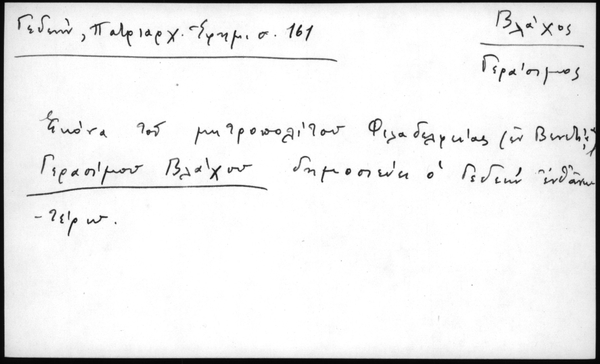 Γεδεών, Πατριαρχ. Ἐφημ. σ. 161
Βλάχος
Γεράσιμος
Εἰκόνα τοῦ μητροπολίτου Φιλαδελφείας (ἐν Βενετίᾳ)
Γερασίμου Βλάχου δημοσιεύει ὁ Γεδεὼν ἐνθᾶνω-
-τέρω.